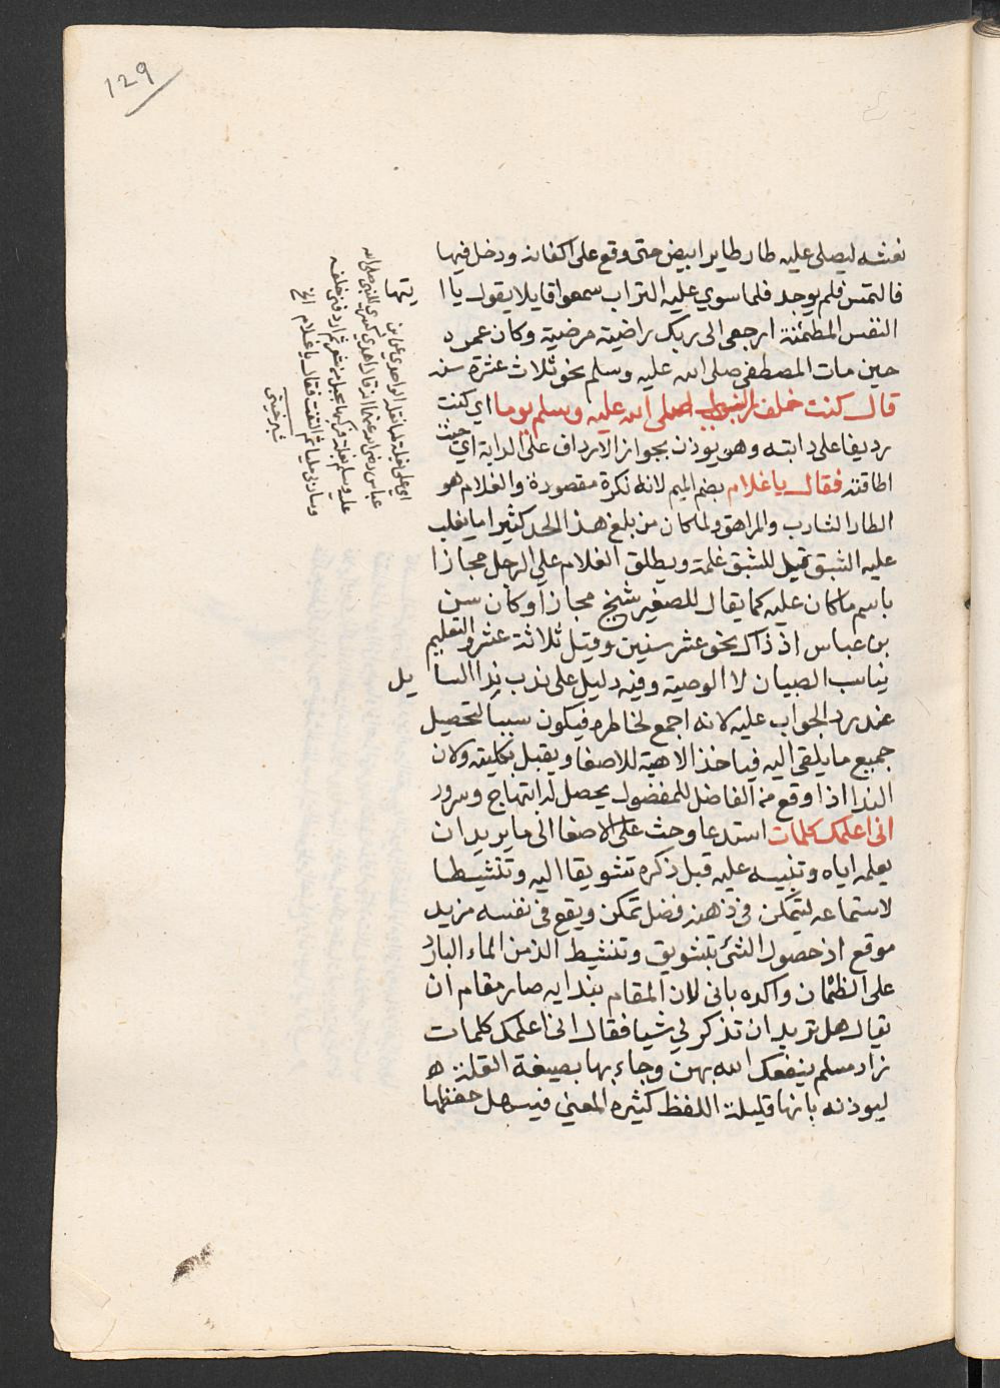 129
نعشه ليصلى عليه طار طاير ابيض حتى وقع على اكفانه ودخل فيها
فالتمس فلم يوجد فلما سوي عليه التراب سمعوا قايلا يقول يا ا
يتها
النفس المطمئنة ارجعى الى ربك راضية مرضية وكان عمره
حين مات المصطفى صلى الله عليه وسلم نحو ثلاث عشرة سنه
قال كنت خلف النبي صلى الله عليه وسلم يوما اي كنت
رديفا على دابته وهو يوذن بجواز الارداف على الدابة اي حيث
اطاقته فقال يا غلام بضم الميم لانه نكرة مقصودة والغلام هو
الطار الشارب والمراهق ولما كان من بلغ هذا الحد كثيرا ما يغلب
عليه الشبق قيل للشبق غلمة ويطلق الغلام على الرجل مجازا
باسم ما كان عليه كما يقال للصغير شيخ مجازا وكان سن
بن عباس اذ ذاك نحو عشر سنين وقيل ثلاثة عشر والتعليم
يناسب الصبيان لا الوصية وفيه دليل على ندب ندا السا
يل
عند رد الجواب عليه لانه اجمع لخاطره فيكون سببا لتحصيل
جميع ما يلقى اليه فياخذ الاهبة للاصغا ويقبل بكليته ولان
الندا اذا وقع من الفاضل للمفضول يحصل له ابتهاج وسرور
انى اعلمك كلمات استدعا وحث على الاصغا الى ما يريد ان
يعلمه اياه وتنبيه عليه قبل ذكره تشويقا اليه وتنشيطا
لاستماعه ليتمكن فى ذهنه فضل تمكن ويقع فى نفسه مزيد
موقع اذ حصول الشئ بتشويق وتنشيط الذ من الماء البارد
على الظمان واكده بانى لان المقام بندايه صار مقام ان
يقال هل تريد ان تذكر لي شيا فقال انى اعلمك كلمات
زاد مسلم ينفعك الله بهن وجاء بها بصيغة القلة
ليوذنه بانها قليلة اللفظ كثيره المعنى فيسهل حفظها
اي على بغلة لما نقله الواحدي عن ابن
عباس رضى الله عنهما انه قال اهدى كسرى للنبي صلى الله
عليه وسلم بغلة فركبها بحبل من شعر ثم اردفنى خلفه
وسار بي مليا ثم التفت فقال يا غلام الخ
شبرخيتي